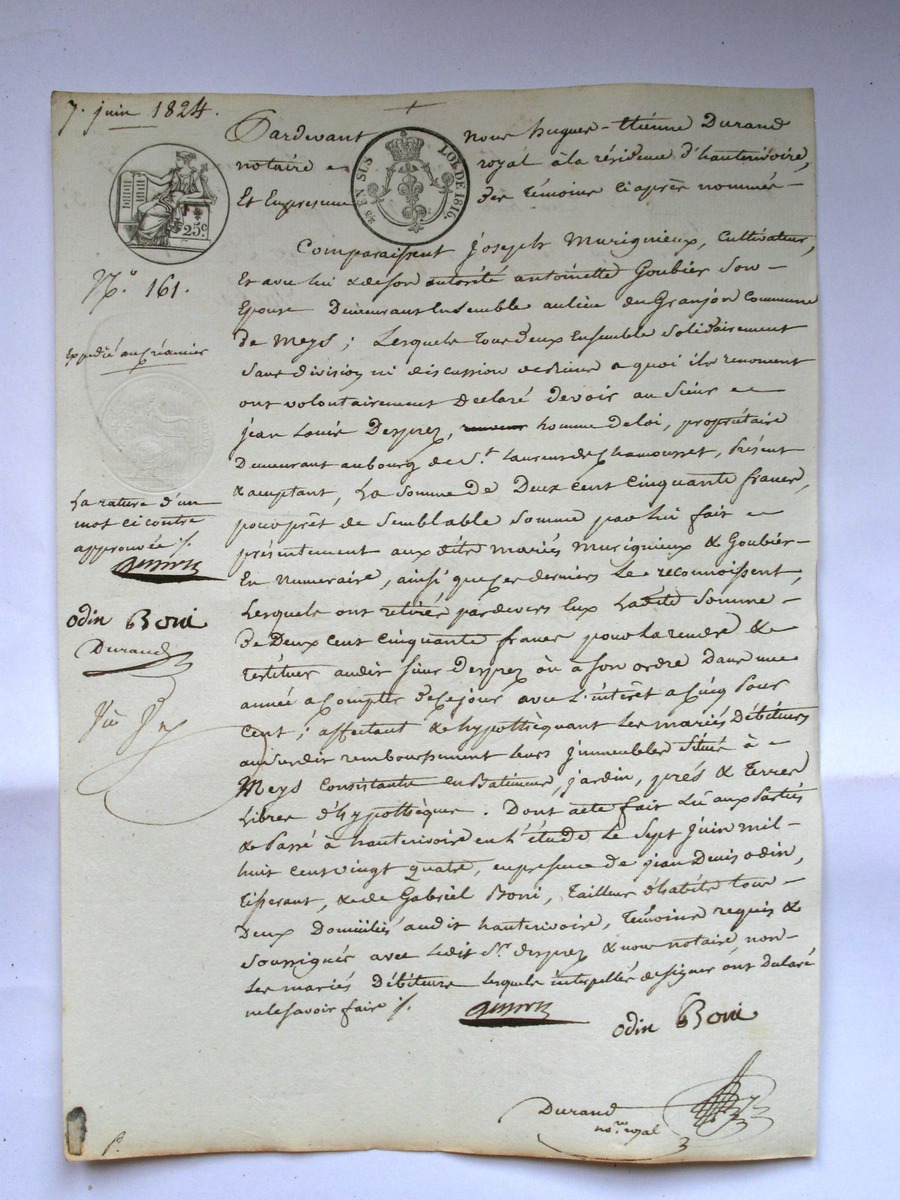 7. juin 1824.
Pardevant nous hugues-étienne Durand
notaire royal à la résidence d'hauterivoire,
Et En presence des témoins ci après nommés-
EN SUS LOI DE 1816.
25c
Comparaissent joseph Murigneux, cultivateur,
Et avec lui & de son autorité antoinette Goubier son-
Epouse Demeurant Ensemble au lieu du Granjon commune
de Meys; Lesquels tous deux Ensemble solidairement
sans division ni discussion de biens a quoi ils renoncent
ont volontairement déclaré devoir au Sieur
jean Louis Desprez, homme de loi, propriétaire
Demeurant au bourg de St. Laurens de Chamousset, Présent
& acceptant, La somme de Deux cent cinquante francs,
pour prêt de semblable somme par lui fait
présentement aux dits mariés murigneux & Goubier-
En numeraire, ainsi que ces derniers le reconnoissent,
Lesquels ont retiré pardevers Eux La dite somme-
de Deux cent cinquante francs pour la rendre &
restituer audit sieur Desprez ou a son ordre Dans une
année a compter de ce jour avec l'intérêt a cinq pour
cent; affectant & hypothéquant les mariés Débiteurs
au susdit remboursement leurs immeubles situés à-
Meys consistants en Batiment, jardin, prés & terres
Libres d'hypothèque. Dont acte fait Lu aux parties
& Passé à hauterivoire en l'étude Le sept juin mil-
huit cent vingt quatre, en presence de jean Denis odin,
tisserant, & de Gabriel Boni, tailleur d'habits tous-
Deux Domiciliés audit hauterivoire, témoins requis &
soussignés avec ledit Sr. desprez & nous notaire non-
les mariés Débiteurs lesquels interpellés de signer ont déclaré
ne le savoir faire ./.
odin Boni
Durand
nore royal
No. 161.
Expédié au créancier
La rature d'un
mot ci contre
approuvée ./.
odin Boni
Durand